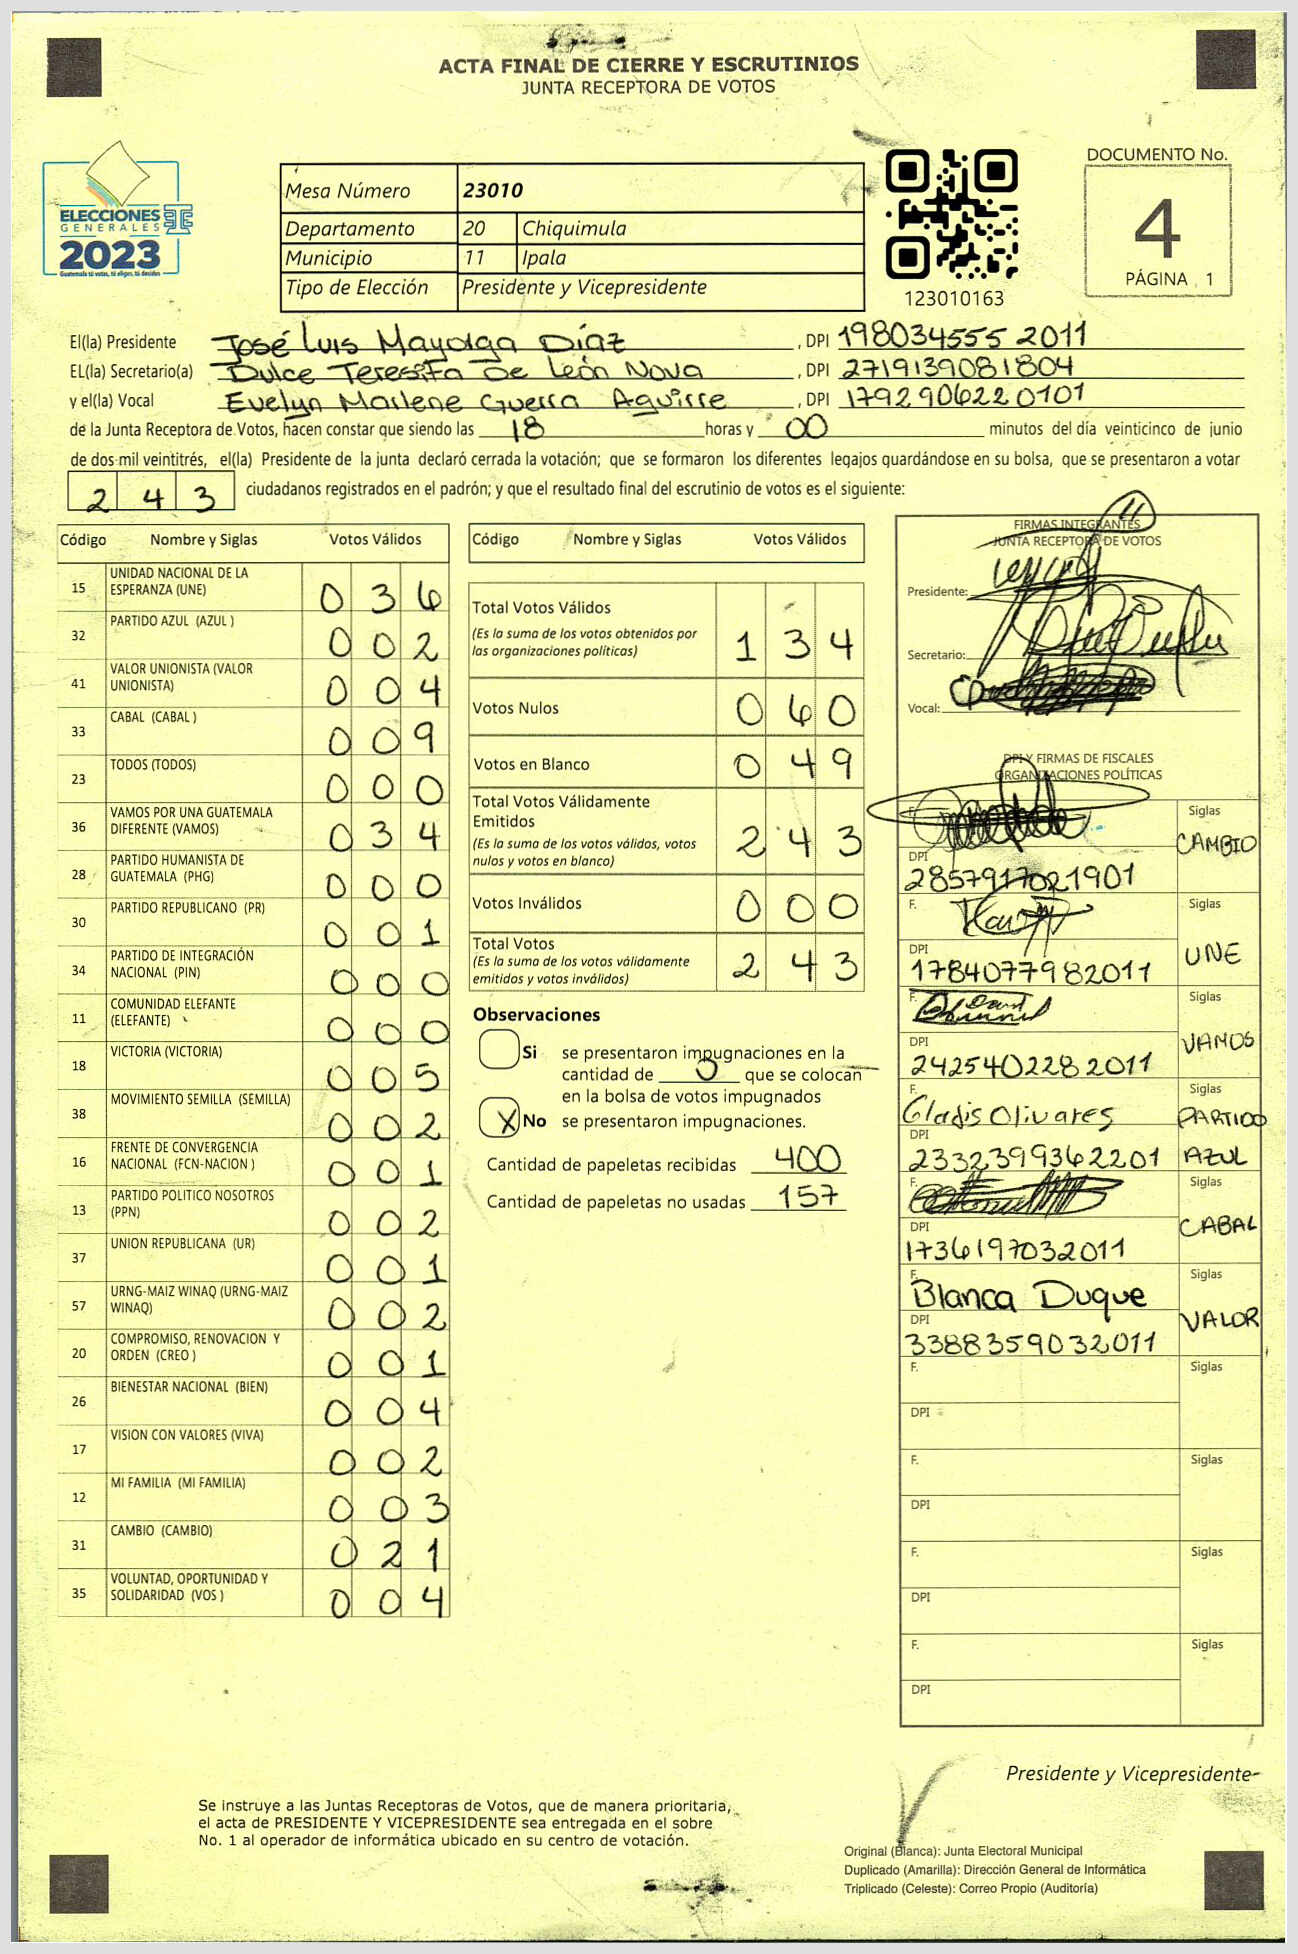 ACTA FINAL DE CIERRE Y ESCRUTINIOS
JUNTA RECEPTORA DE VOTOS
ELECCIONES
GENERALES
2023
Guatemala tú votas, tú eliges, tú decides
Mesa Número 23010
Departamento 20 Chiquimula
Municipio 11 Ipala
Tipo de Elección Presidente y Vicepresidente
123010163
DOCUMENTO No.
4
PÁGINA 1
El(la) Presidente José Luis Mayorga Díaz, DPI 198034555 2011
EL(la) Secretario(a) Dulce Teresita De León Nova, DPI 2719139081804
y el(la) Vocal Evelyn Marlene Guerra Aguirre, DPI 1792906220101
de la Junta Receptora de Votos, hacen constar que siendo las 18 horas y 00 minutos del día veinticinco de junio
de dos mil veintitrés, el(la) Presidente de la junta declaró cerrada la votación; que se formaron los diferentes legajos guardándose en su bolsa, que se presentaron a votar
2 4 3 ciudadanos registrados en el padrón; y que el resultado final del escrutinio de votos es el siguiente:
Código Nombre y Siglas Votos Válidos
15 UNIDAD NACIONAL DE LA
ESPERANZA (UNE) 0 3 6
32 PARTIDO AZUL (AZUL ) 0 0 2
41 VALOR UNIONISTA (VALOR
UNIONISTA) 0 0 4
33 CABAL (CABAL ) 0 0 9
23 TODOS (TODOS) 0 0 0
36 VAMOS POR UNA GUATEMALA
DIFERENTE (VAMOS) 0 3 4
28 PARTIDO HUMANISTA DE
GUATEMALA (PHG) 0 0 0
30 PARTIDO REPUBLICANO (PR) 0 0 1
34 PARTIDO DE INTEGRACIÓN
NACIONAL (PIN) 0 0 0
11 COMUNIDAD ELEFANTE
(ELEFANTE) 0 0 0
18 VICTORIA (VICTORIA) 0 0 5
38 MOVIMIENTO SEMILLA (SEMILLA) 0 0 2
16 FRENTE DE CONVERGENCIA
NACIONAL (FCN-NACION ) 0 0 1
13 PARTIDO POLITICO NOSOTROS
(PPN) 0 0 2
37 UNION REPUBLICANA (UR) 0 0 1
57 URNG-MAIZ WINAQ (URNG-MAIZ
WINAQ) 0 0 2
20 COMPROMISO, RENOVACION Y
ORDEN (CREO ) 0 0 1
26 BIENESTAR NACIONAL (BIEN) 0 0 4
17 VISION CON VALORES (VIVA) 0 0 2
12 MI FAMILIA (MI FAMILIA) 0 0 3
31 CAMBIO (CAMBIO) 0 2 1
35 VOLUNTAD, OPORTUNIDAD Y
SOLIDARIDAD (VOS ) 0 0 4
Código Nombre y Siglas Votos Válidos
Total Votos Válidos
(Es la suma de los votos obtenidos por
las organizaciones políticas) 1 3 4
Votos Nulos 0 6 0
Votos en Blanco 0 4 9
Total Votos Válidamente
Emitidos
(Es la suma de los votos válidos, votos
nulos y votos en blanco) 2 4 3
Votos Inválidos 0 0 0
Total Votos
(Es la suma de los votos válidamente
emitidos y votos inválidos) 2 4 3
Observaciones
Si se presentaron impugnaciones en la
cantidad de 0 que se colocan
en la bolsa de votos impugnados
X No se presentaron impugnaciones.
Cantidad de papeletas recibidas 400
Cantidad de papeletas no usadas 157
FIRMAS INTEGRANTES
JUNTA RECEPTORA DE VOTOS
Presidente:
Secretario:
Vocal:
DPI Y FIRMAS DE FISCALES
ORGANIZACIONES POLÍTICAS
F. Siglas
CAMBIO
DPI
2857917021901
F. Siglas
UNE
DPI
1784077982011
F. Siglas
VAMOS
DPI
2425402282011
F. Gladis Olivares Siglas
PARTIDO
AZUL
DPI
2332399362201
F. Siglas
CABAL
DPI
1736197032011
F. Blanca Duque Siglas
VALOR
DPI
3388359032011
F. Siglas
DPI
F. Siglas
DPI
F. Siglas
DPI
F. Siglas
DPI
Presidente y Vicepresidente
Se instruye a las Juntas Receptoras de Votos, que de manera prioritaria,
el acta de PRESIDENTE Y VICEPRESIDENTE sea entregada en el sobre
No. 1 al operador de informática ubicado en su centro de votación.
Original (Blanca): Junta Electoral Municipal
Duplicado (Amarilla): Dirección General de Informática
Triplicado (Celeste): Correo Propio (Auditoría)